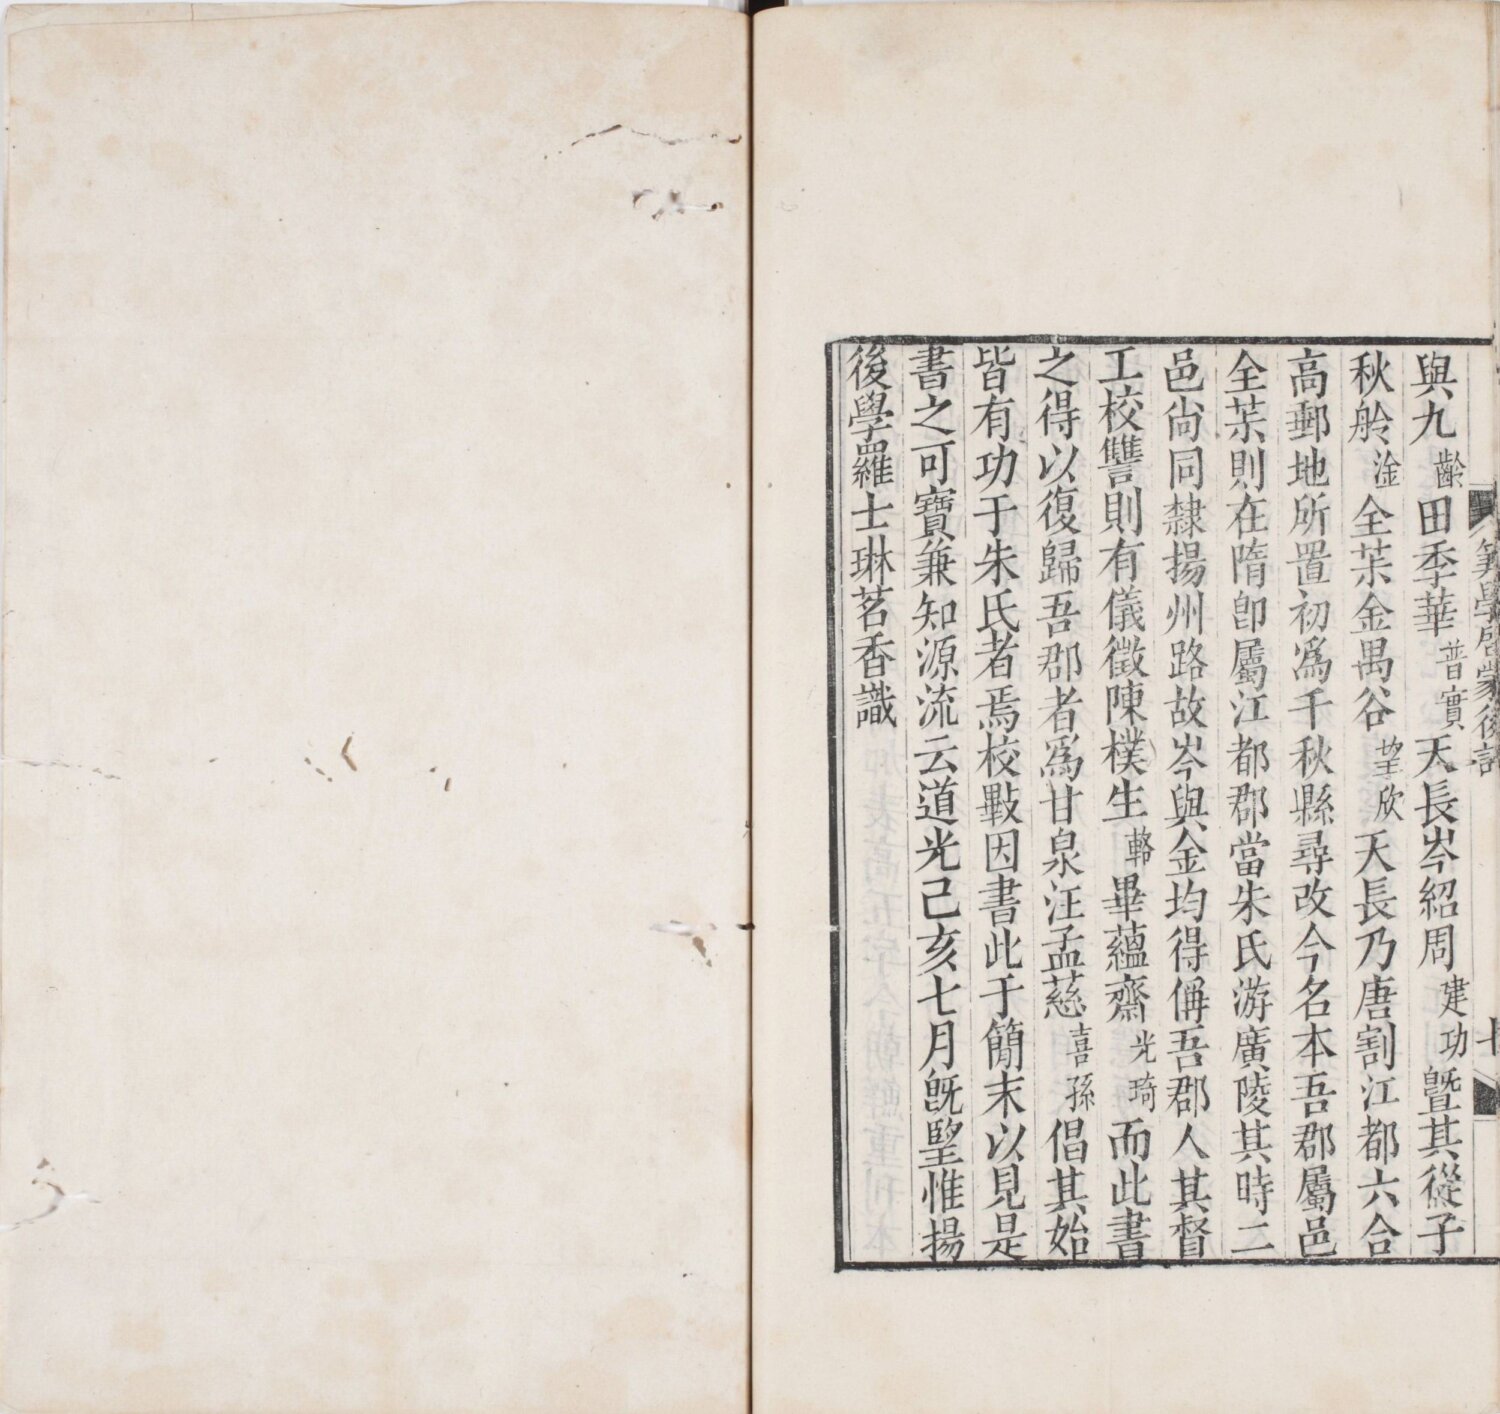 與九齡田季華普實天長岑紹周建功曁其從子
秋舲淦全茮金禺谷望欣天長乃唐割江都六合
高郵地所置初爲千秋縣尋改今名本吾郡屬邑
全茮則在隋卽屬江都郡當朱氏游廣陵其時二
邑尙同隸揚州路故岑與金均得偁吾郡人其督
工校讐則有儀徵陳樸生輅畢蘊齋光琦而此書
之得以復歸吾郡者爲甘泉汪孟慈喜孫倡其始
皆有功于朱氏者焉校斁因書此于簡末以見是
書之可寶兼知源流云道光己亥七月旣朢惟揚
後學羅士琳茗香識
算學啓蒙後記